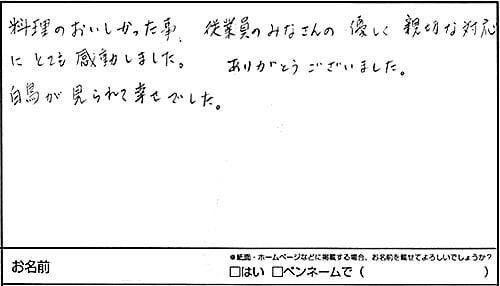 料理のおいしかった事、従業員のみなさんの優しく親切な対応
にとても感動しました。 ありがとうございました。
白鳥が見られて幸せでした。
※紙面・ホームページなどに掲載する場合、お名前を載せてよろしいでしょうか?
お名前 □はい □ペンネームで ( )